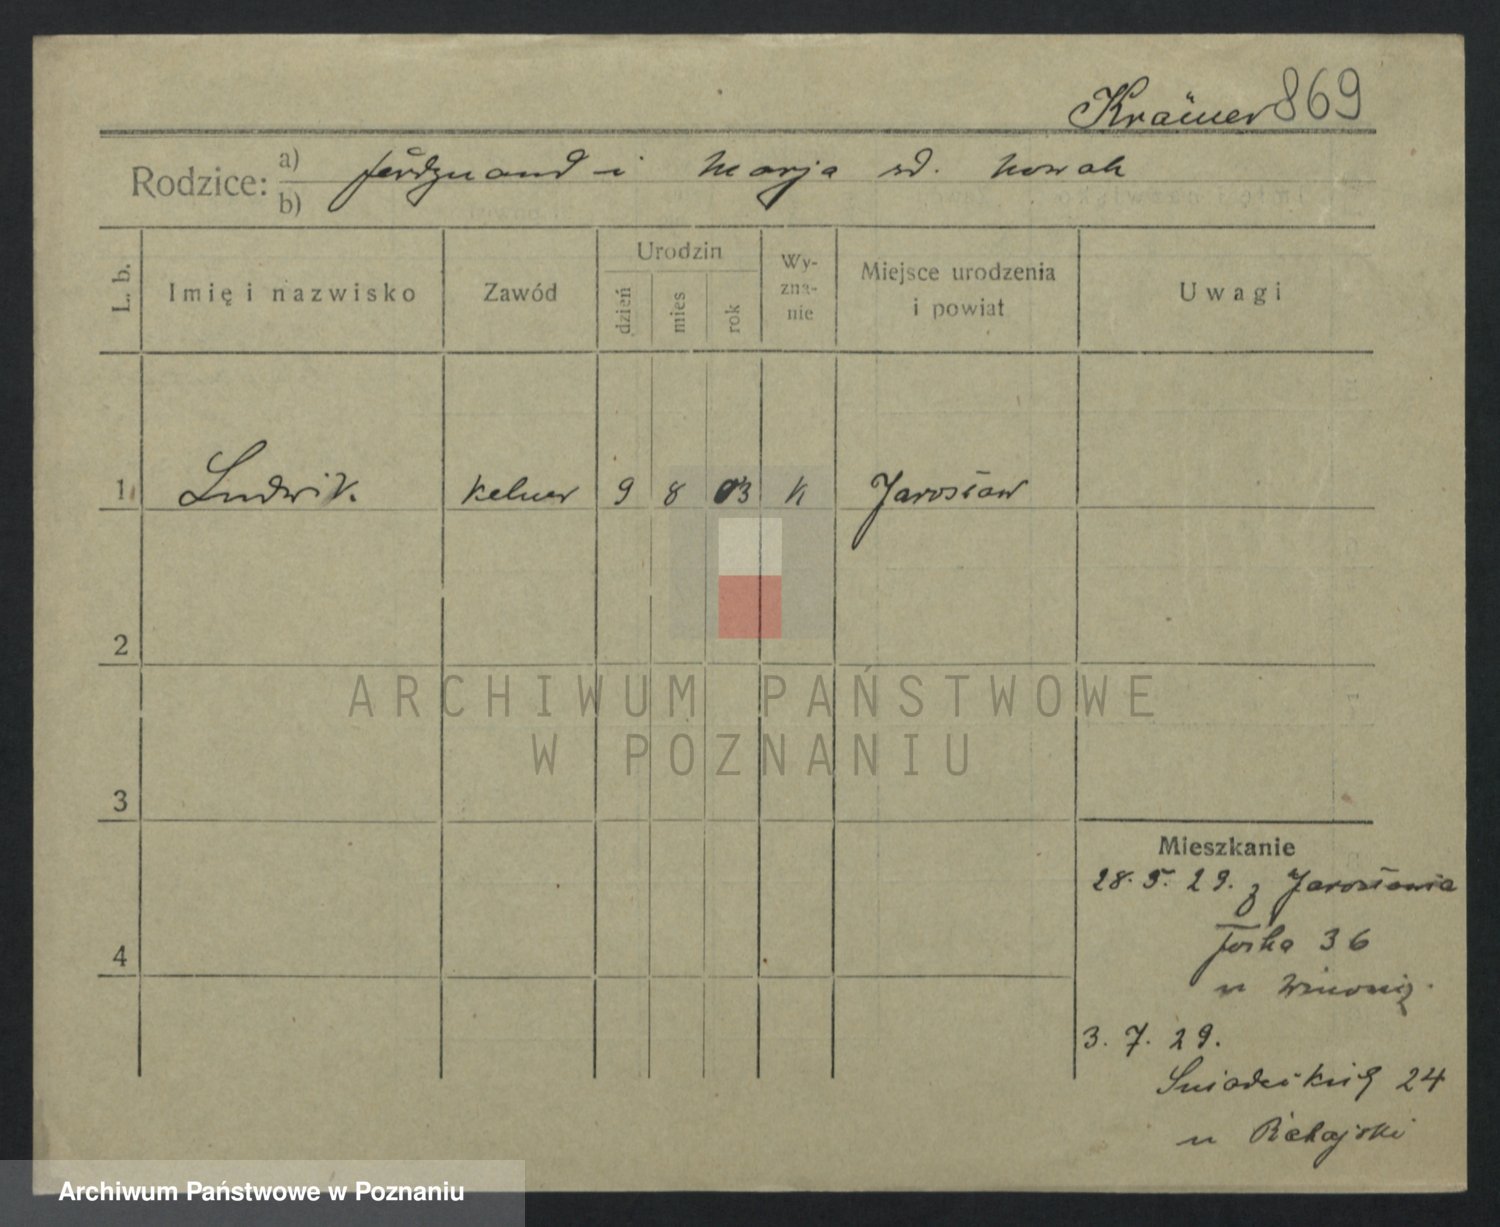 Krämer 869
Rodzice: a) Ferdynand i Marja zd. Nowak
b)
L. b. Imię i nazwisko Zawód Urodzin dzień mies rok Wyzna-nie Miejsce urodzenia i powiat Uwagi
1 Ludwik. kelner 9 8 03 k Jarosław
2
ARCHIWUM PAŃSTWOWE
W POZNANIU
3
Mieszkanie
28. 5. 29. z Jarosławia
4
36
u
3. 7. 29.
Śniadeckich 24
u
Archiwum Państwowe w Poznaniu